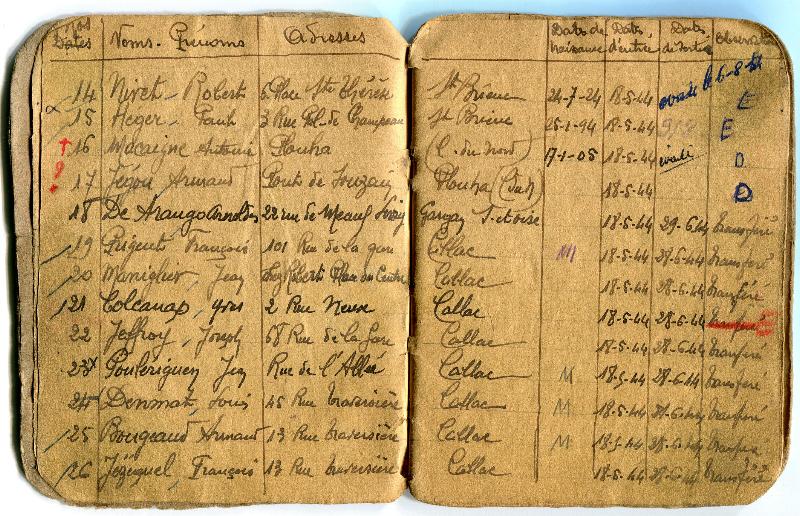 Nos Dates Noms - Prénoms Adresses Date de naissance Date d'entrée Date de sortie Observation
14 Nivet - Robert 6 Place Ste Thérèse St Brieuc 24-7-24 18-5-44 évadé le 6-8-44 E
15 Heger - Paul 3 Rue Pol-de St Brieuc 25-1-94 18-5-44 E
+16 Macaigne Antoine Plouha (C. du Nord) 17-1-05 18-5-44 évadé D
? 17 Jégou Armand Pont de Plouha (Sud) 18-5-44 D
18 De Araugo Arnold 22 rue de 18-5-44 29-6-44 transféré
19 Prigent François 101 Rue de la gare Callac M 18-5-44 28-6-44 transféré
20 Maniglier, Jean Chez Robert Place du Centre Callac 18-5-44 28-6-44 transféré
21 Colcanap, Yves 2 Rue Neuve Callac 18-5-44 28-6-44
22 Jeffroy, Joseph 68 Rue de la Gare Callac 18-5-44 28-6-44 transféré
23x Pouleriguen Jean Rue de l'Allée Callac M 18-5-44 28-6-44 transféré
24 Denmat, Louis 45 Rue traversière Callac M 18-5-44 28-6-44 transféré
25 Bougeard Armand 13 Rue traversière Callac M 18-5-44 28-6-44 transféré
26 Jézéquel, François 13 Rue traversière Callac 18-5-44 28-6-44 transféré